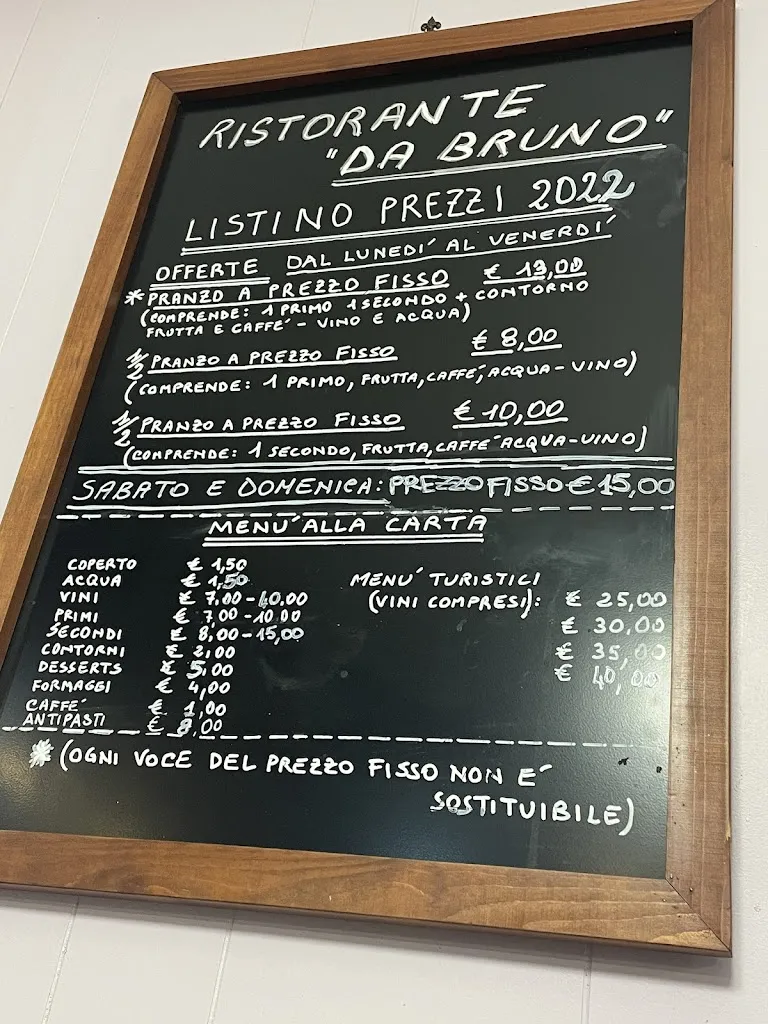 RISTORANTE
"DA BRUNO"
LISTINO PREZZI 2022
OFFERTE DAL LUNEDI' AL VENERDI'
* PRANZO A PREZZO FISSO € 13,00
(COMPRENDE: 1 PRIMO 1 SECONDO + CONTORNO
FRUTTA E CAFFE' - VINO E ACQUA)
1/2 PRANZO A PREZZO FISSO € 8,00
(COMPRENDE: 1 PRIMO, FRUTTA, CAFFE', ACQUA-VINO)
1/2 PRANZO A PREZZO FISSO € 10,00
(COMPRENDE: 1 SECONDO, FRUTTA, CAFFE' ACQUA-VINO)
SABATO E DOMENICA: PREZZO FISSO € 15,00
MENU' ALLA CARTA
COPERTO € 1,50
ACQUA € 1,50
VINI € 7,00-40,00
PRIMI € 7,00-10,00
SECONDI € 8,00-15,00
CONTORNI € 2,00
DESSERTS € 5,00
FORMAGGI € 4,00
CAFFE' € 1,00
ANTIPASTI € 8,00
MENU' TURISTICI
(VINI COMPRESI): € 25,00
€ 30,00
€ 35,00
€ 40,00
* (OGNI VOCE DEL PREZZO FISSO NON E'
SOSTITUIBILE)